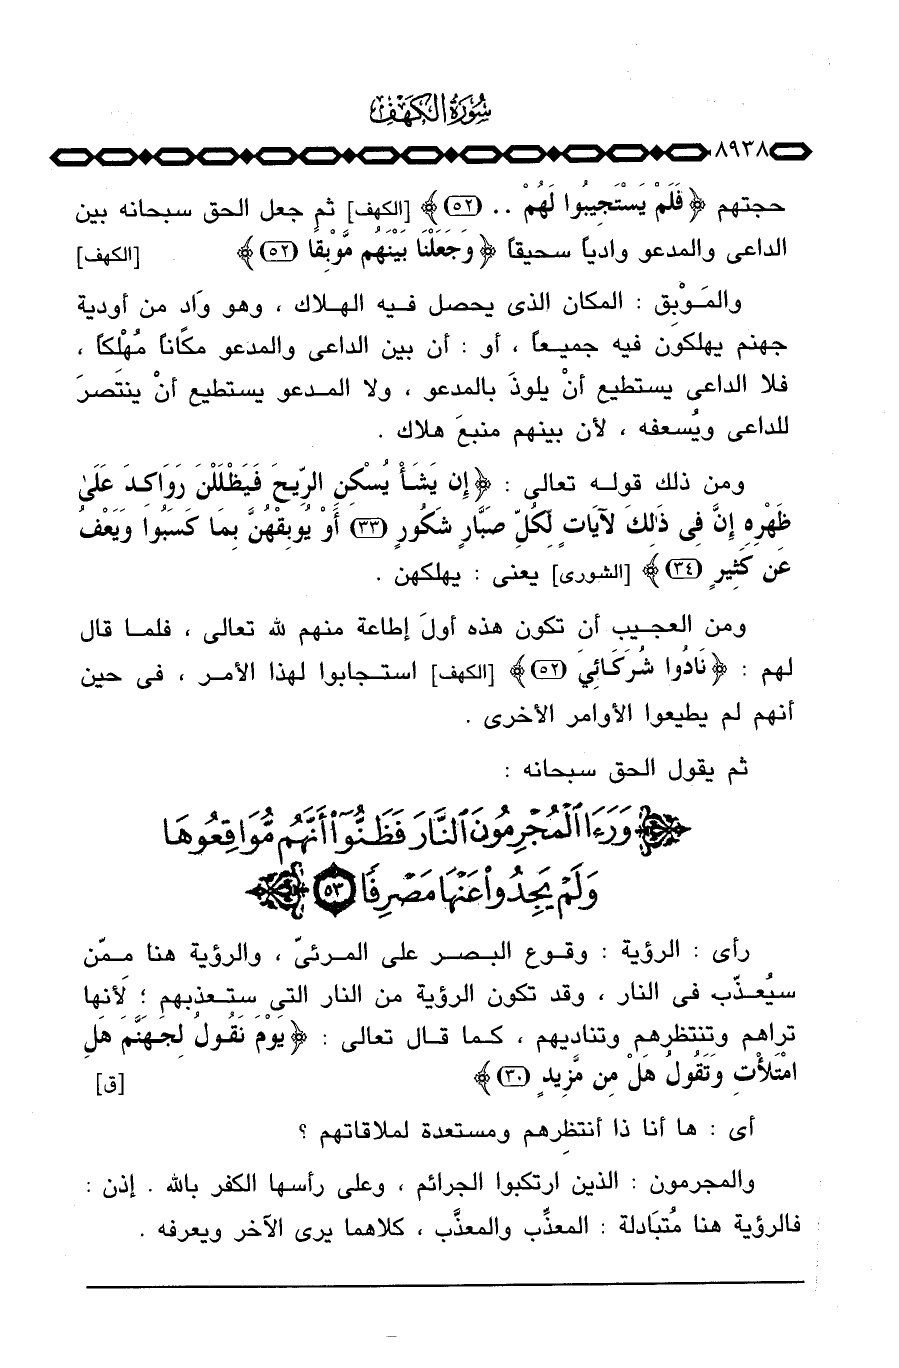 سُورَةُ الكَهْفِ
٨٩٣٨
حجتهم ﴿فَلَمْ يَسْتَجِيبُوا لَهُمْ .. (٥٢)﴾ [الكهف] ثم جعل الحق سبحانه بين
الداعى والمدعو وادياً سحيقاً ﴿وَجَعَلْنَا بَيْنَهُم مَّوْبِقًا (٥٢)﴾ [الكهف]
والمَوْبِق : المكان الذى يحصل فيه الهلاك ، وهو وَاد من أودية
جهنم يهلكون فيه جميعاً ، أو : أن بين الداعى والمدعو مكاناً مُهْلكاً ،
فلا الداعى يستطيع أنْ يلوذَ بالمدعو ، ولا المدعو يستطيع أنْ ينتصرَ
للداعى ويُسعفه ، لأن بينهم منبعَ هلاك .
ومن ذلك قوله تعالى : ﴿إِن يَشَأْ يُسْكِنِ الرِّيحَ فَيَظْلَلْنَ رَوَاكِدَ عَلَىٰ
ظَهْرِهِ إِنَّ فِي ذَلِكَ لآيَاتٍ لِّكُلِّ صَبَّارٍ شَكُورٍ (٣٣) أَوْ يُوبِقْهُنَّ بِمَا كَسَبُوا وَيَعْفُ
عَن كَثِيرٍ (٣٤)﴾ [الشورى] يعنى : يهلكهن .
ومن العجيب أن تكون هذه أولَ إطاعة منهم لله تعالى ، فلما قال
لهم : ﴿نَادُوا شُرَكَائِيَ (٥٢)﴾ [الكهف] استجابوا لهذا الأمر ، فى حين
أنهم لم يطيعوا الأوامر الأخرى .
ثم يقول الحق سبحانه :
﴿وَرَءَا ٱلْمُجْرِمُونَ ٱلنَّارَ فَظَنُّوٓا۟ أَنَّهُم مُّوَاقِعُوهَا
وَلَمْ يَجِدُوا۟ عَنْهَا مَصْرِفًا ٥٣﴾
رأى : الرؤية : وقوع البصر على المرئىّ ، والرؤية هنا ممّن
سيُعذّب فى النار ، وقد تكون الرؤية من النار التى ستعذبهم ؛ لأنها
تراهم وتنتظرهم وتناديهم ، كما قال تعالى : ﴿يَوْمَ نَقُولُ لِجَهَنَّمَ هَلِ
امْتَلأْتِ وَتَقُولُ هَلْ مِن مَّزِيدٍ (٣٠)﴾ [ق]
أى : ها أنا ذا أنتظرهم ومستعدة لملاقاتهم ؟
والمجرمون : الذين ارتكبوا الجرائم ، وعلى رأسها الكفر بالله . إذن :
فالرؤية هنا مُتبَادلة : المعذِّب والمعذَّب ، كلاهما يرى الآخر ويعرفه .